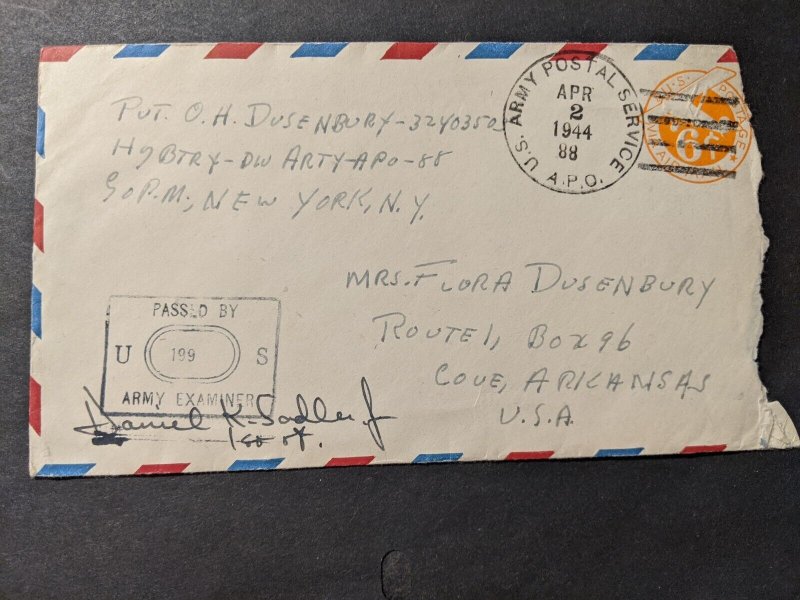 PVT. O. H. DUSENBURY-32403503
HqBTRY-DIV ARTY-APO-88
℅ P.M., NEW YORK, N.Y.
U.S. ARMY POSTAL SERVICE
APR
2
1944
88
A.P.O.
U.S. POSTAGE
6¢
VIA AIR
MRS. FLORA DUSENBURY
ROUTE 1, BOX 96
COVE, ARKANSAS
U.S.A.
PASSED BY
U 199 S
ARMY EXAMINER
Daniel K. Sadler Jr
1st Lt.